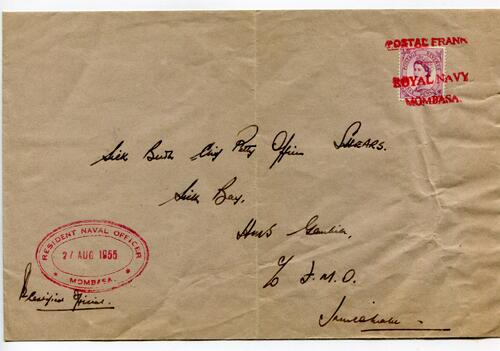 POSTAL FRANK
ROYAL NAVY
MOMBASA.
Sick Berth Chief Petty Officer SHEARS.
Sick Bay.
HMS Gambia.
c/o F.M.O.
Trincomalee
RESIDENT NAVAL OFFICER
27 AUG 1955
* MOMBASA *